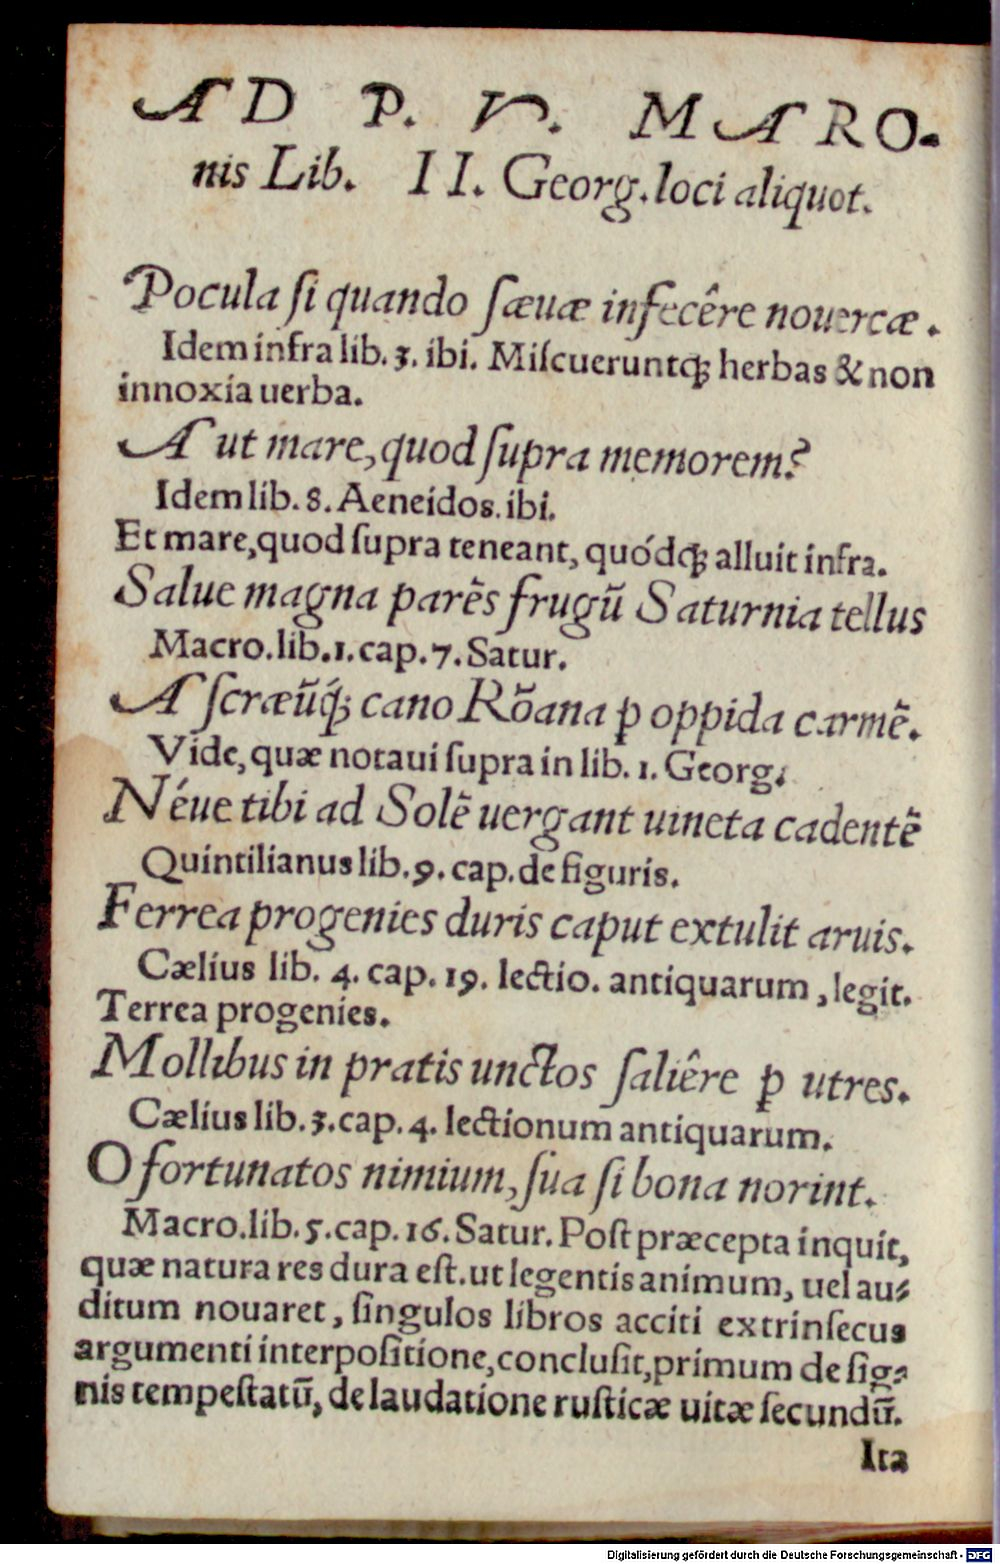 AD P. V. MARO-
nis Lib. II. Georg. loci aliquot.
Pocula ſi quando ſæuæ infecêre nouercæ.
Idem infra lib. 3. ibi. Miſcueruntq́; herbas & non
innoxia uerba.
Aut mare, quod ſupra memorem?
Idem lib. 8. Aeneidos. ibi.
Et mare, quod ſupra teneant, quódq́; alluit infra.
Salue magna parẽs frugũ Saturnia tellus
Macro. lib. 1. cap. 7. Satur.
Aſcræũq́; cano Rõana ꝑ oppida carmẽ.
Vide, quæ notaui ſupra in lib. 1. Georg.
Néue tibi ad Solẽ uergant uineta cadentẽ
Quintilianus lib. 9. cap. de figuris.
Ferrea progenies duris caput extulit aruis.
Cælius lib. 4. cap. 19. lectio. antiquarum, legit.
Terrea progenies.
Mollibus in pratis unctos ſaliêre ꝑ utres.
Cælius lib. 3. cap. 4. lectionum antiquarum.
O fortunatos nimium, ſua ſi bona norint.
Macro. lib. 5. cap. 16. Satur. Poſt præcepta inquit,
quæ natura res dura eſt. ut legentis animum, uel au⸗
ditum nouaret, ſingulos libros acciti extrinſecus
argumenti interpoſitione, concluſit, primum de ſig⸗
nis tempeſtatũ, de laudatione ruſticæ uitæ ſecundũ.
Ita
Digitalisierung gefördert durch die Deutsche Forschungsgemeinschaft - DFG